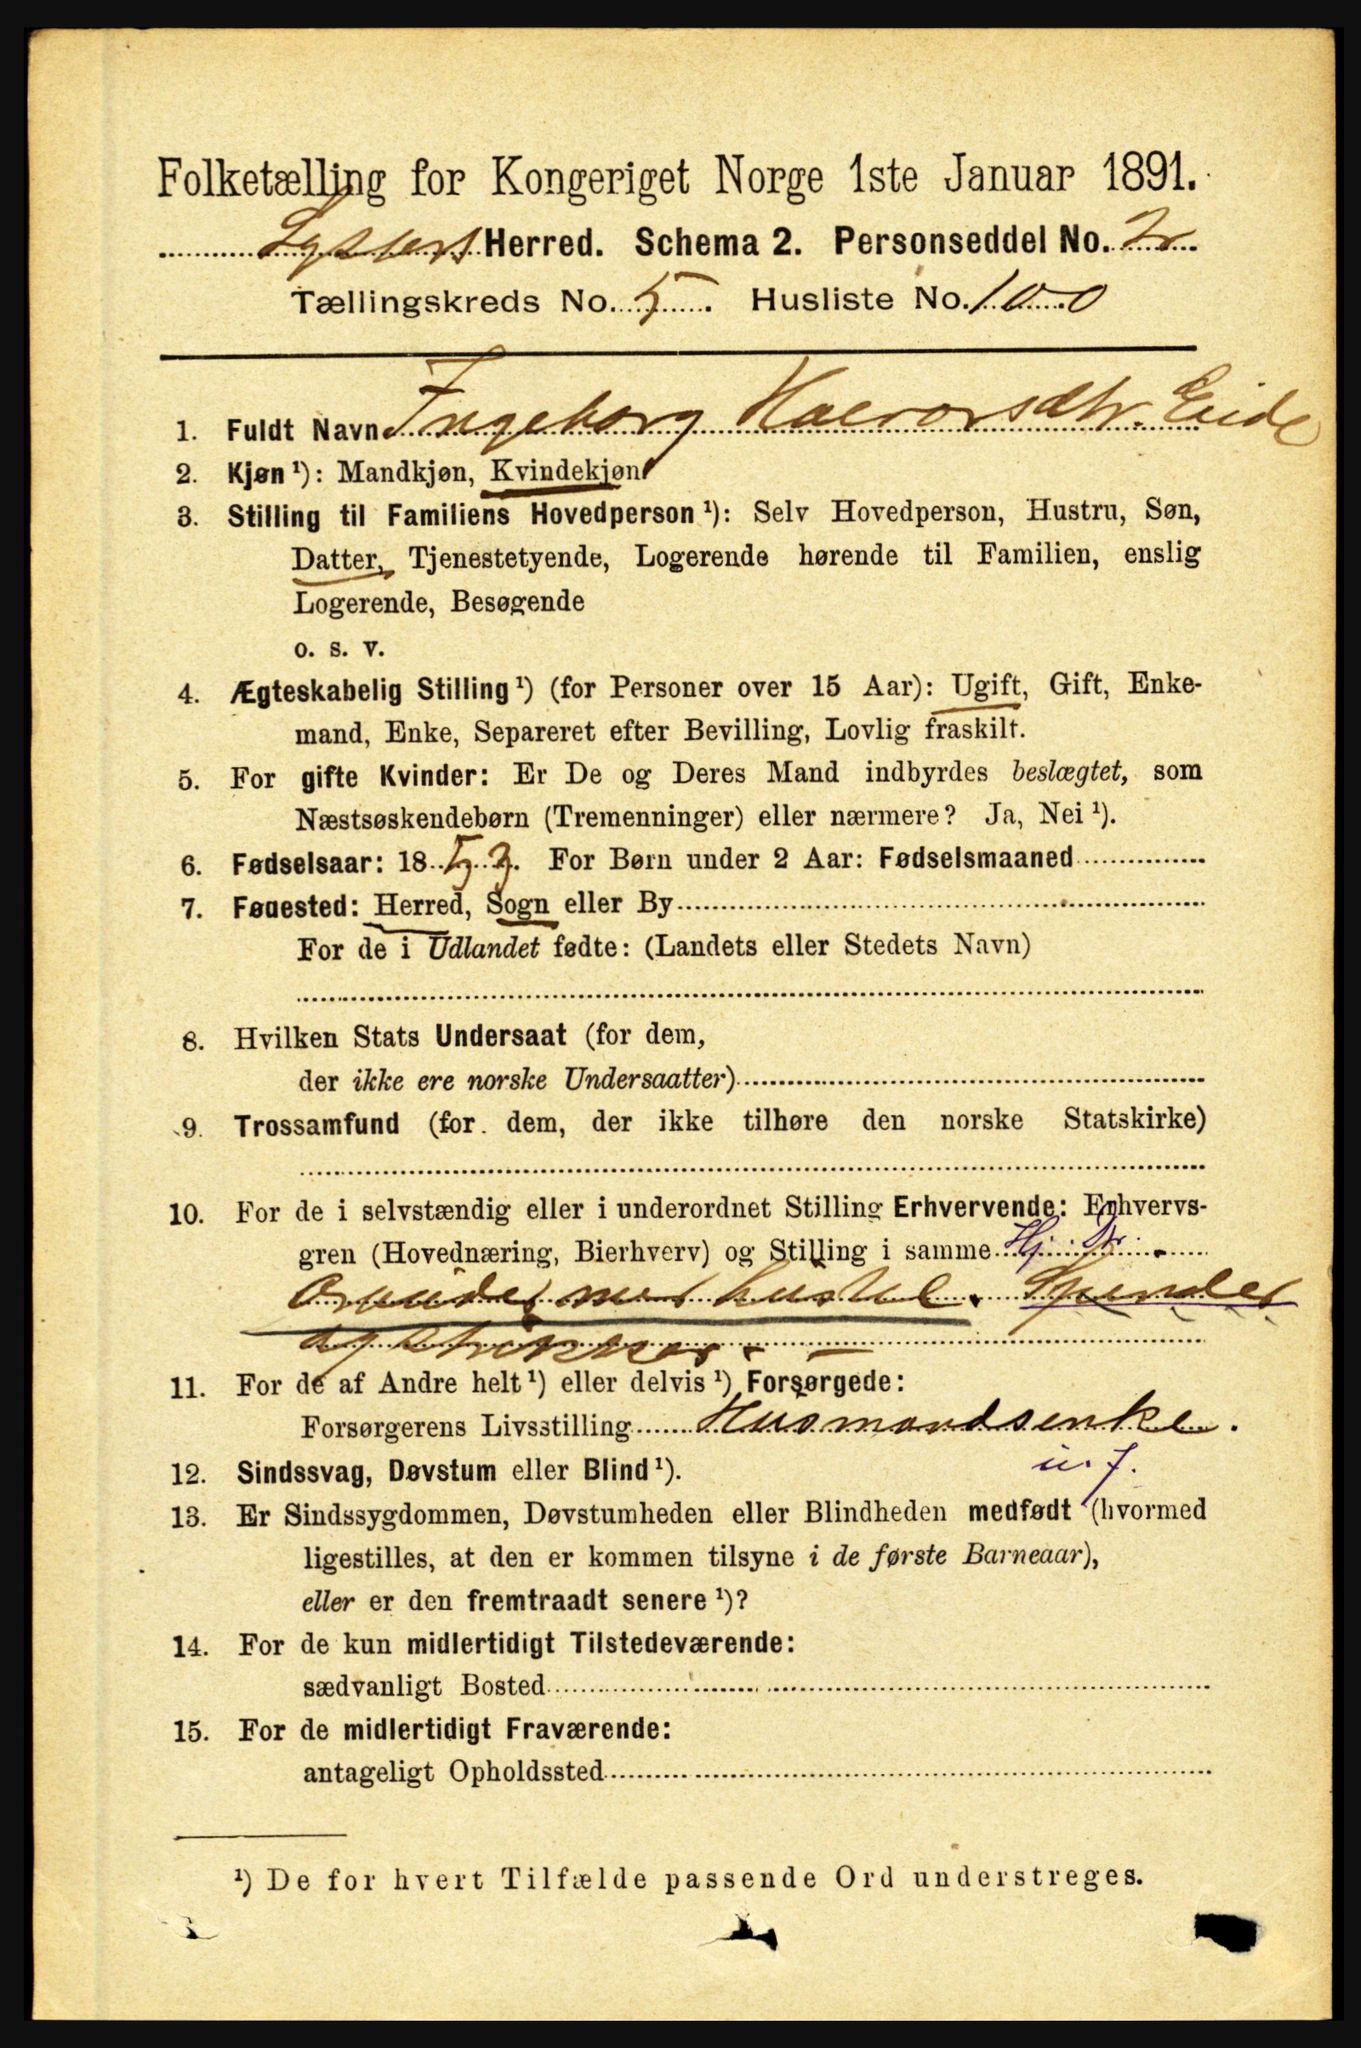 Folketælling for Kongeriget Norge 1ste Januar 1891.
Lysters Herred. Schema 2. Personseddel No. 2
Tællingskreds No. 5. Husliste No. 100
1. Fuldt Navn Ingeborg Halvorsdtr. Eide
2. Kjøn ¹): Mandkjøn, Kvindekjøn
3. Stilling til Familiens Hovedperson ¹): Selv Hovedperson, Hustru, Søn,
Datter, Tjenestetyende, Logerende hørende til Familien, enslig
Logerende, Besøgende
o. s. v.
4. Ægteskabelig Stilling ¹) (for Personer over 15 Aar): Ugift, Gift, Enke-
mand, Enke, Separeret efter Bevilling, Lovlig fraskilt.
5. For gifte Kvinder: Er De og Deres Mand indbyrdes beslægtet, som
Næstsøskendebørn (Tremenninger) eller nærmere? Ja, Nei ¹).
6. Fødselsaar: 1853. For Børn under 2 Aar: Fødselsmaaned
7. Føuested: Herred, Sogn eller By
For de i Udlandet fødte: (Landets eller Stedets Navn)
8. Hvilken Stats Undersaat (for dem,
der ikke ere norske Undersaatter)
9. Trossamfund (for dem, der ikke tilhøre den norske Statskirke)
10. For de i selvstændig eller i underordnet Stilling Erhvervende: Erhvervs-
gren (Hovednæring, Bierhverv) og Stilling i samme Hj. Dtr.
med hustel. Spinder
og strikker.
11. For de af Andre helt ¹) eller delvis ¹) Forsørgede:
Forsørgerens Livsstilling Husmandsenke.
12. Sindssvag, Døvstum eller Blind ¹). u. f.
13. Er Sindssygdommen, Døvstumheden eller Blindheden medfødt (hvormed
ligestilles, at den er kommen tilsyne i de første Barneaar),
eller er den fremtraadt senere ¹)?
14. For de kun midlertidigt Tilstedeværende:
sædvanligt Bosted
15. For de midlertidigt Fraværende:
antageligt Opholdssted
¹) De for hvert Tilfælde passende Ord understreges.